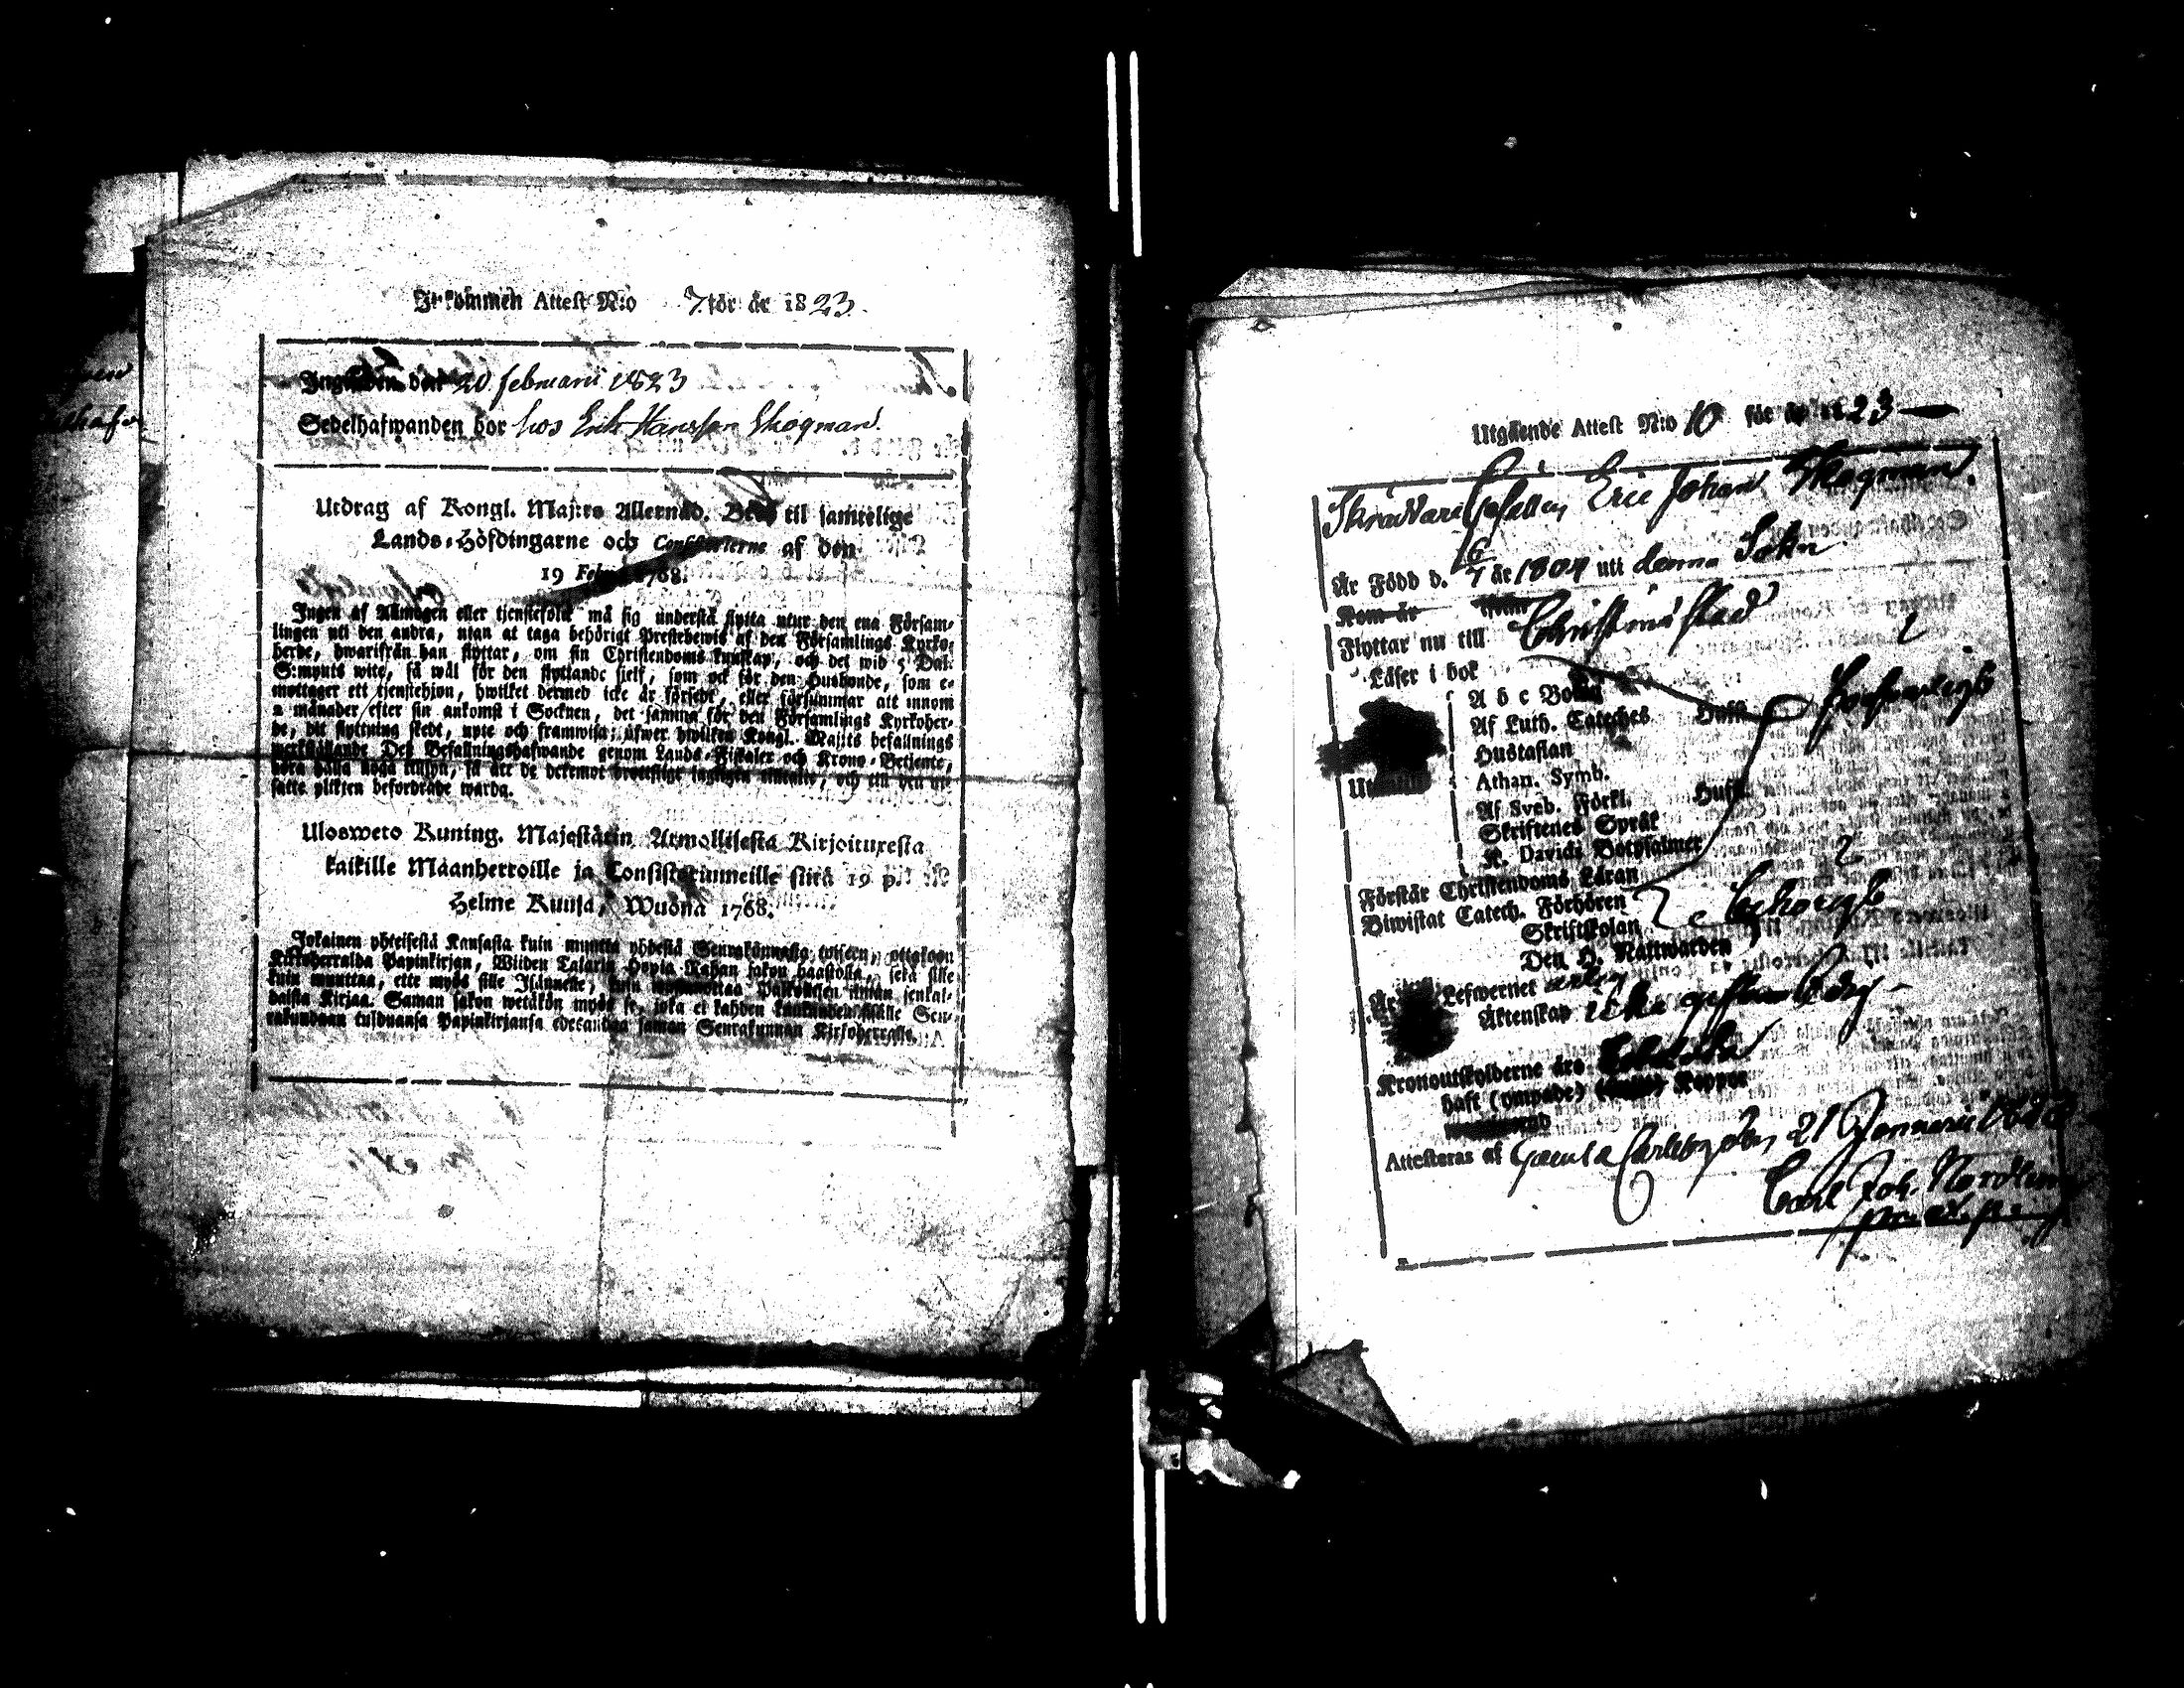 Inkommen Attest N:o 7 för år 1823.
Inglefven den 20 februarii 1823
Sedelhafwanden bor hos Erik Hansson Skogman
Utdrag af Kongl. Maj:ts Allernåd. Bref til samtelige
Lands-Höfdingarne och Consistorierne af den
19 Febr. 1768.
Ingen af Allmogen eller tjenstefolk må sig understå flytta utur den ena Försam-
lingen uti den andra, utan at taga behörigt Prestebewis af den Församlings Kyrko-
herde, hwarifrån han flyttar, om sin Christendoms kunskap, och det wid 5 Dal.
S:mynts wite, så wäl för den flyttande sjelf, som ock för den Husbonde, som e-
mottager ett tjenstehjon, hwilket dermed icke är försedt, eller försummar att innom
2 månader efter sin ankomst i Socknen, det samma för den Församlings Kyrkoher-
de, dit flyttning skedt, upte och framwisa; öfwer hwilken Kongl. Maj:ts befallnings
werkställande Des Befallningshafwande genom Lands-Fiskaler och Krono-Betjente,
böra hålla noga tillsyn, så att de deremot brottslige lagligen tilltalte, och till den ut-
satte plikten befordrade warda.
Ulosweto Kuning. Majestätin Armollisesta Kirjoituxesta
kaikille Maanherroille ja Consistoriumeille siitä 19 p.
Helme Kuusa, Wuonna 1768.
Jokainen yhteisestä Kansasta kuin muutta yhdestä Seurakunnasta toiseen, ottakoon
Kirkoherralda Papinkirjan, Wiiden Talarin Hopia Rahan sakon haastolla, sekä sille
kuin muuttaa, että myös sille Isännelle, kuin
haista Kirjaa. Saman sakon wetäkön myös se, joka ei kahden kuukauden sisälle Seu-
rakundaan tulduansa Papinkirjansa edesanna saman Seurakunnan Kirkoherralle.
Utgående Attest N:o 10 för år 1823
Skräddare Gesällen Eric Johan Skogman.
Är Född d. 6/7 år 1804 uti denna Sokn
Kom år ifrån
Flyttar nu till Christinæstad
Läser i bok
A b c Boken
Af Luth. Cateches Huft
Hustaflan
Athan. Symb.
Af Sveb. Förkl. Huft
Skriftenes Språk
K. Davids Botpsalmer
Förstår Christendoms Läran
Biwistat Catech. Förhören behörigt
Skriftskolan
Den H. Nattwarden
Är Lefwernet
Äktenskap icke
Kronoutskylderne äro
haft (ympade) Koppor
Attesteras af Gamla Carleby den 21 Januarii
Carl Joh.